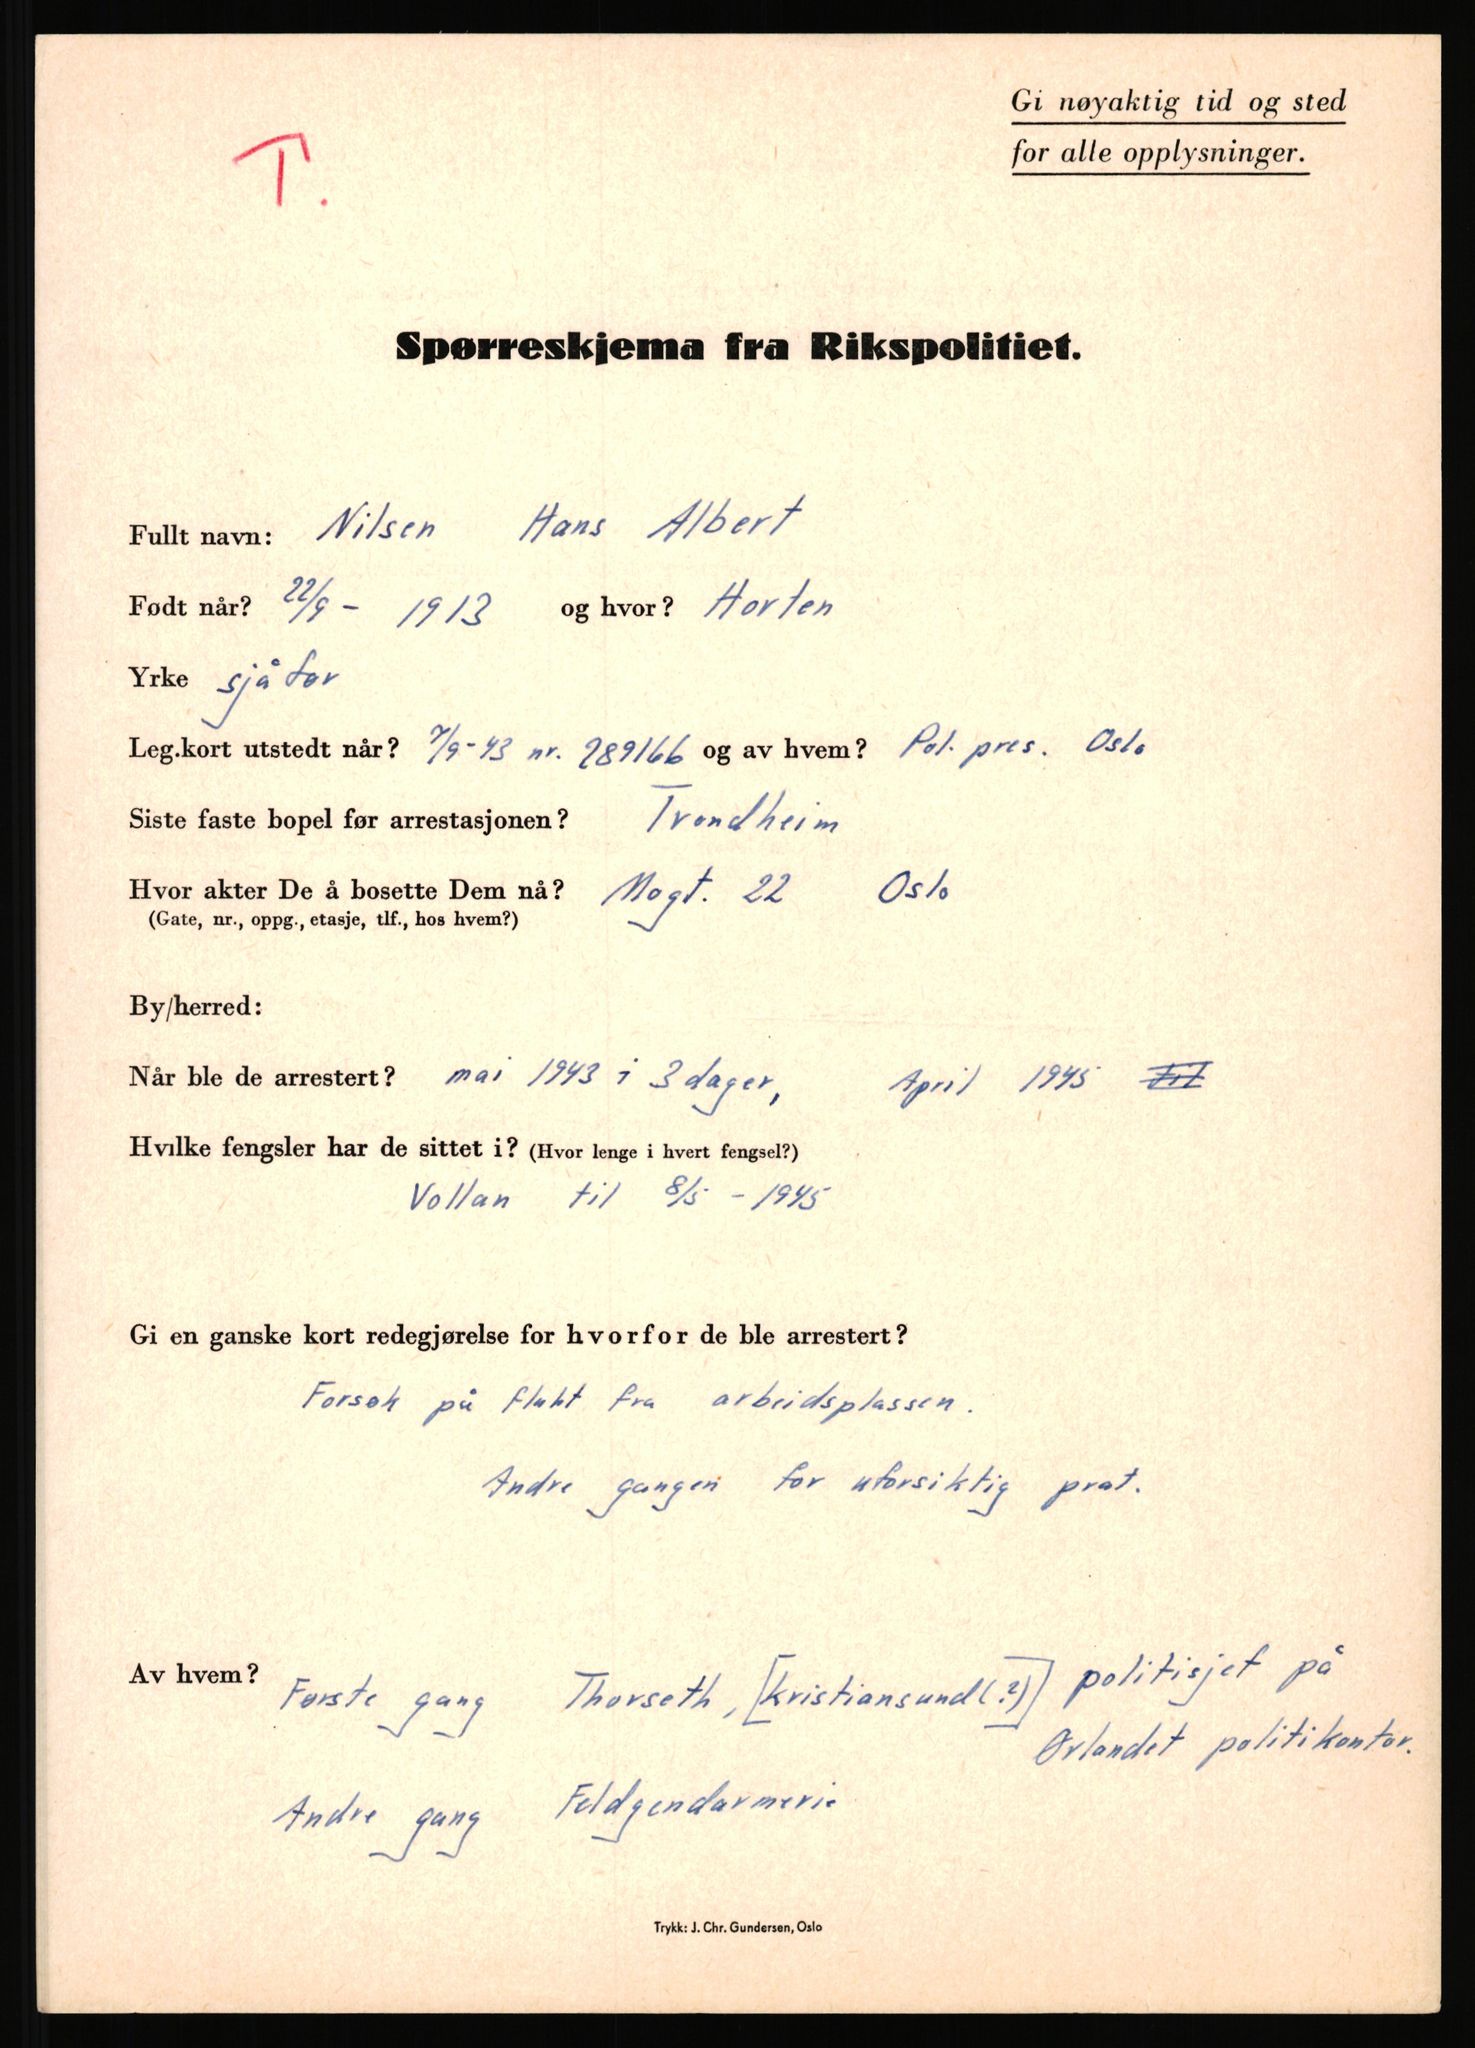 Gi nøyaktig tid og sted
for alle opplysninger.
T.
Spørreskjema fra Rikspolitiet.
Fullt navn: Nilsen Hans Albert
Født når? 22/9 - 1913 og hvor? Horten
Yrke sjåfør
Leg.kort utstedt når? 7/9-43 nr. 289166 og av hvem? Pol. pres. Oslo
Siste faste bopel før arrestasjonen? Trondheim
Hvor akter De å bosette Dem nå? Mogt. 22 Oslo
(Gate, nr., oppg., etasje, tlf., hos hvem?)
By/herred:
Når ble de arrestert? mai 1943 i 3 dager, April 1945
Hvilke fengsler har de sittet i? (Hvor lenge i hvert fengsel?)
Vollan til 8/5 - 1945
Gi en ganske kort redegjørelse for hvorfor de ble arrestert?
Forsøk på flukt fra arbeidsplassen.
Andre gangen for uforsiktig prat.
Av hvem? Første gang Thorseth, [Kristiansund(?)] politisjef på
Ørlandet politikontor.
Andre gang Feldgendarmerie
Trykk: J. Chr. Gundersen, Oslo